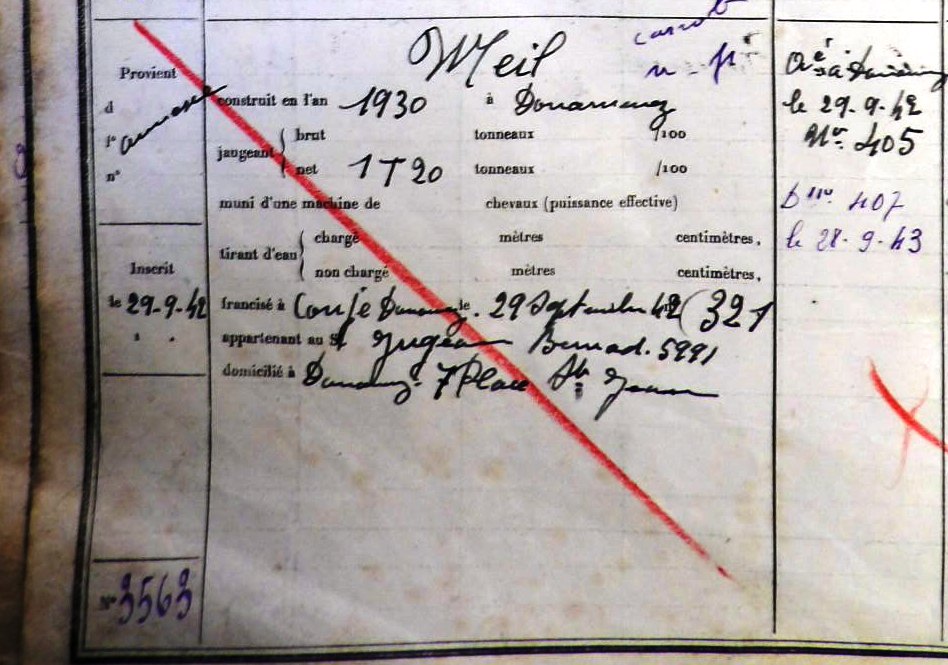 Meil
canot
n - pt
Provient
d
construit en l'an 1930 à Douarnenez
le
brut tonneaux /100
jaugeant
net 1T20 tonneaux /100
n°
muni d'une machine de chevaux (puissance effective)
chargé mètres centimètres,
tirant d'eau
non chargé mètres centimètres,
Inscrit
le 29.9.42 francisé à Congé Douarnenez le. 29 Septembre 42 (321
" " appartenant au Sr Bernard. 5991
domicilié à Douarnenez. 7 Place St Jean
N° 3563
à
le 29-9-42
N° 405
407
le 28-9-43